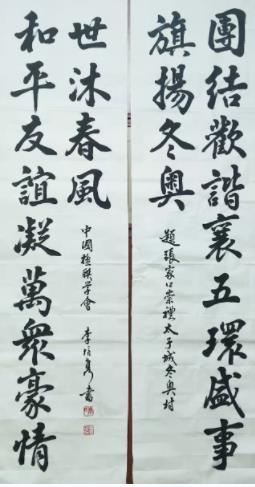 團結歡諧襄五環盛事
旗揚冬奥
題張家口崇禮太子城冬奥村
和平友誼凝萬衆豪情
世沐春風
中國楹联学會 李培隽書